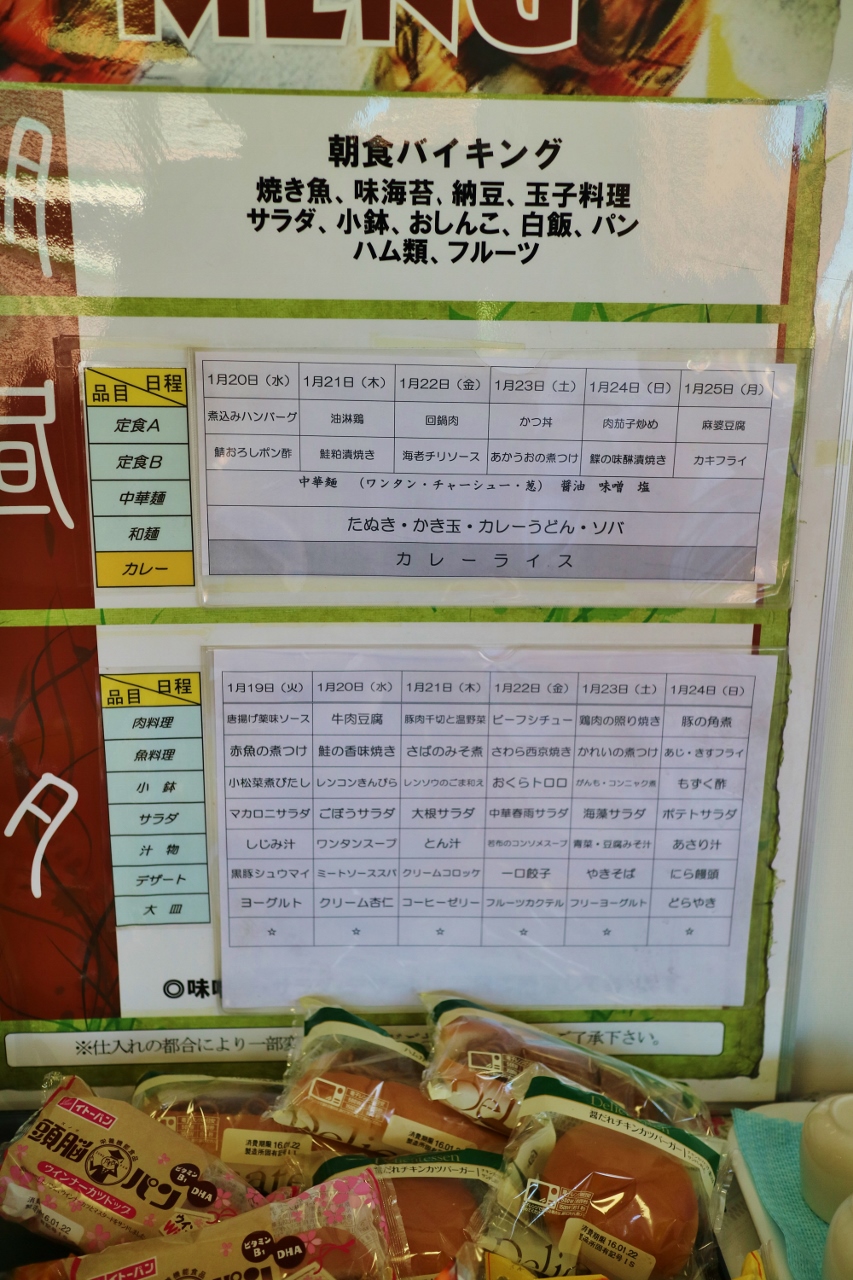 MENU
朝
朝食バイキング
焼き魚、味海苔、納豆、玉子料理
サラダ、小鉢、おしんこ、白飯、パン
ハム類、フルーツ
昼
品目 日程 1月20日（水） 1月21日（木） 1月22日（金） 1月23日（土） 1月24日（日） 1月25日（月）
定食A 煮込みハンバーグ 油淋鶏 回鍋肉 かつ丼 肉茄子炒め 麻婆豆腐
定食B 鯖おろしポン酢 鮭粕漬焼き 海老チリソース あかうおの煮つけ 鰈の味醂漬焼き カキフライ
中華麺 中華麺 （ワンタン・チャーシュー・葱） 醤油 味噌 塩
和麺 たぬき・かき玉・カレーうどん・ソバ
カレー カレーライス
夕
品目 日程 1月19日（火） 1月20日（水） 1月21日（木） 1月22日（金） 1月23日（土） 1月24日（日）
肉料理 唐揚げ薬味ソース 牛肉豆腐 豚肉千切と温野菜 ビーフシチュー 鶏肉の照り焼き 豚の角煮
魚料理 赤魚の煮つけ 鮭の香味焼き さばのみそ煮 さわら西京焼き かれいの煮つけ あじ・きすフライ
小鉢 小松菜煮びたし レンコンきんぴら レンソウのごま和え おくらトロロ がんも・コンニャク煮 もずく酢
サラダ マカロニサラダ ごぼうサラダ 大根サラダ 中華春雨サラダ 海藻サラダ ポテトサラダ
汁物 しじみ汁 ワンタンスープ とん汁 若布のコンソメスープ 青菜・豆腐みそ汁 あさり汁
デザート 黒豚シュウマイ ミートソーススパ クリームコロッケ 一口餃子 やきそば にら饅頭
大皿 ヨーグルト クリーム杏仁 コーヒーゼリー フルーツカクテル フリーヨーグルト どらやき
☆ ☆ ☆ ☆ ☆ ☆
◎味
※仕入れの都合により一部 ご了承下さい。
イトーパン
頭脳パン
ビタミンB1 DHA
ウインナーカツドッグ
消費期限 16.01.22
醤だれチキンカツバーガー
醤だれチキンカツバーガー
消費期限 16.01.22
製造所固有記号 IS
イトーパン
ビタミンB1 DHA